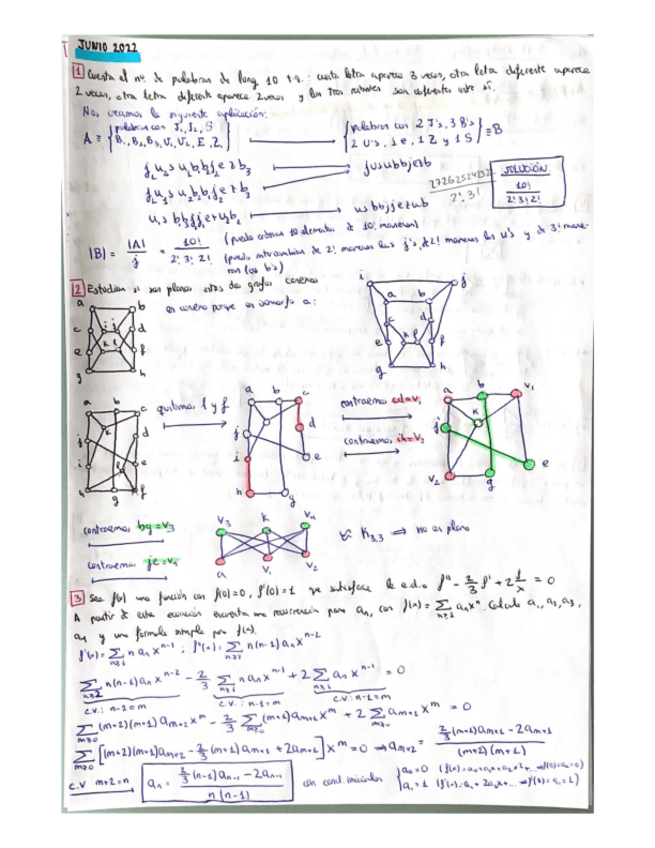 JUNIO 2022
1 Cuenta el nº de palabras de long 10 t.q.: cierta letra aparece 3 veces, otra letra diferente aparece
2 veces, otra letra diferente aparece 2 veces y las tres restantes son diferentes entre sí.
Nos creamos la siguiente aplicación:
A ≡ {palabras con J₁, J₂, S B₁, B₂, B₃, U₁, U₂, E, Z} → {palabras con 2 J's, 3 B's 2 U's, 1 e, 1 Z y 1 S} ≡ B
jusubbjezb
usbbjjezub
SOLUCIÓN
10!
2! 3! 2!
|B| = |A| / j = 10! / 2! 3! 2! (puedo ordenar 10 elementos de 10! maneras)
(puedo intercambiar de 2! maneras las j's, de 2! maneras las u's y de 3! mane-
ras las b's)
2 Estudian si son planos estos dos grafos conexos
a b i j c d e k l f g h
es conexo porque es isomorfo a:
i j a b c d e k l f g h
a b c k d j i e l h g f
quitamos l y f
a b c d j e i h g
contraemos cd=v₁
contraemos ih=v₂
a b v₁ j k e v₂ g
contraemos bg=v₃
contraemos je=v₄
v₃ k v₄
a v₁ v₂
≈ K₃,₃ ⟹ no es plano
3 Sea f(x) una función con f(0)=0, f'(0)=1 que satisface la e.d.o f'' - 2/3 f' + 2 f/x = 0
A partir de esta ecuación encuentra una recurrencia para aₙ, con f(x) = Σ_{n≥1} aₙxⁿ. Calcula a₁, a₂, a₃,
a₄ y una formula simple por f(x).
f'(x) = Σ_{n≥1} n aₙ xⁿ⁻¹ ; f''(x) = Σ_{n≥2} n(n-1) aₙ xⁿ⁻²
Σ_{n≥2} n(n-1) aₙ xⁿ⁻² - 2/3 Σ_{n≥1} n aₙ xⁿ⁻¹ + 2 Σ_{n≥1} aₙ xⁿ⁻¹ = 0
c.v.: n-2=m c.v.: n-1=m c.v.: n-1=m
Σ_{m≥0} (m+2)(m+1) aₘ₊₂ xᵐ - 2/3 Σ_{m≥0} (m+1) aₘ₊₁ xᵐ + 2 Σ_{m≥0} aₘ₊₁ xᵐ = 0
Σ_{m≥0} [(m+2)(m+1) aₘ₊₂ - 2/3 (m+1) aₘ₊₁ + 2aₘ₊₁] xᵐ = 0 ⟹ aₘ₊₂ = (2/3 (m+1) aₘ₊₁ - 2aₘ₊₁) / ((m+2)(m+1))
c.v m+2=n aₙ = (2/3 (n-1) aₙ₋₁ - 2aₙ₋₁) / (n (n-1)) con cond. iniciales {a₀=0 (f(x)=a₀+a₁x+a₂x²+... ⟹ f(0)=a₀=0)
a₁=1 (f'(x)=a₁+2a₂x+... ⟹ f'(0)=a₁=1)